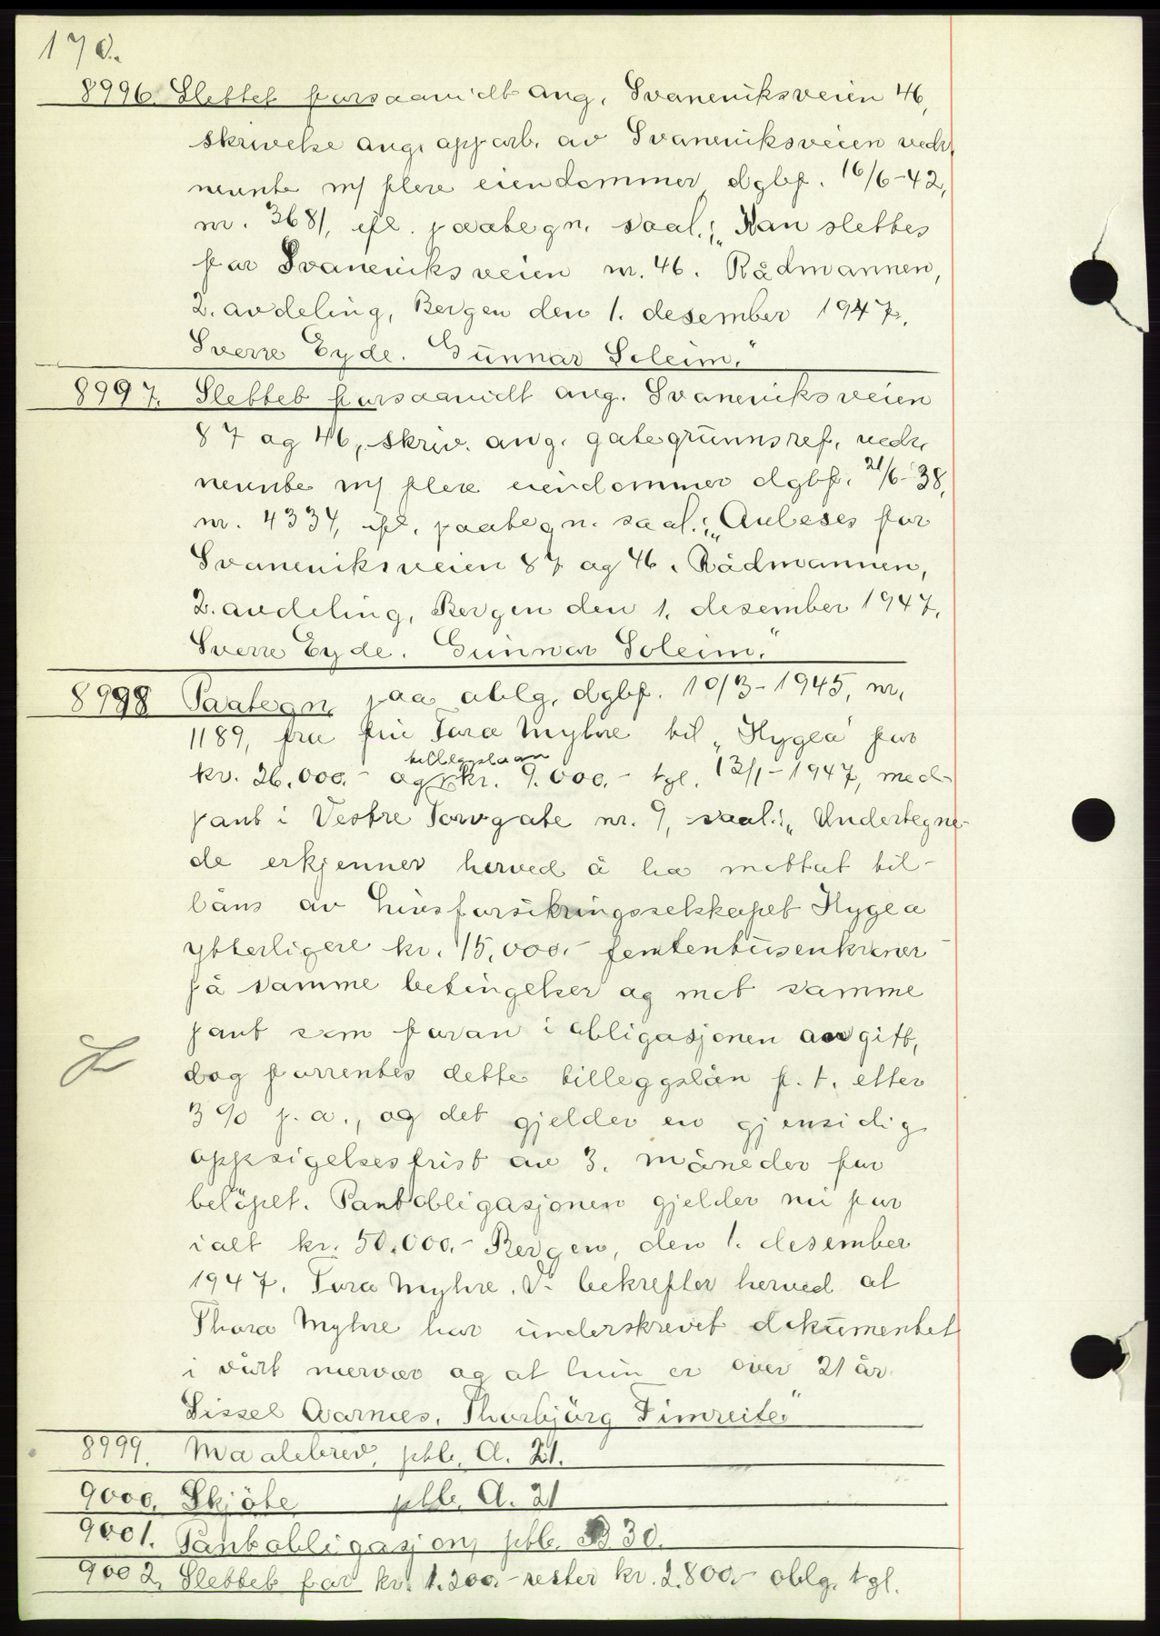 170.
8996. Slettet forsaavidt ang. Svaneviksveien 46,
skrivelse ang. opparb. av Svaneviksveien vedr.
nevnte m/ flere eiendommer, dgbf. 16/6-42,
nr. 3681, ifl. paategn. saal.: "Kan slettes
for Svaneviksveien nr. 46. Rådmannen,
2. avdeling, Bergen den 1. desember 1947.
Sverre Eyde. Gunnar Soleim."
8997. Slettet forsaavidt ang. Svaneviksveien
87 og 46, skriv. ang. gategrunnsref. vedr.
nevnte m/ flere eiendommer dgbf. 21/6-38,
nr. 4334, ifl. paategn. saal.: "Avleses for
Svaneviksveien 87 og 46. Rådmannen,
2. avdeling, Bergen den 1. desember 1947.
Sverre Eyde. Gunnar Soleim."
8998 Paategn. paa oblg. dgbf. 10/3-1945, nr.
1189, fra frk Tora Myhre til "Hygea" for
tilleggslaan
kr. 26.000.- og kr. 9.000.- tgl. 13/1-1947, med
pant i Vestre Torvgate nr. 9, saal.: "Undertegne-
de erkjenner herved å ha mottatt til-
låns av Livsforsikringsselskapet Hygea
ytterligere kr. 15.000.- femtentusenkroner -
på samme betingelser og mot samme
pant som foran i obligasjonen avgitt,
dog forrentes dette tilleggslån f. t. etter
3 % p. a., og det gjelder en gjensidig
oppsigelsesfrist av 3. måneder for
beløpet. Pantobligasjonen gjelder nu for
ialt kr. 50.000.- Bergen, den 1. desember
1947. Tora Myhre. Vi bekrefter herved at
Thora Myhre har underskrevet dokumentet
i vårt nærvær og at hun er over 21 år.
Sissel Aarnes. Thorbjörg Fimreite."
8999. Maalebrev, pbb. A. 21.
9000. Skjöte pbb. A. 21
9001. Pantobligasjon, pbb. B 30.
9002. Slettet for kr. 1.200.- rester kr. 2.800.- oblg. tgl.